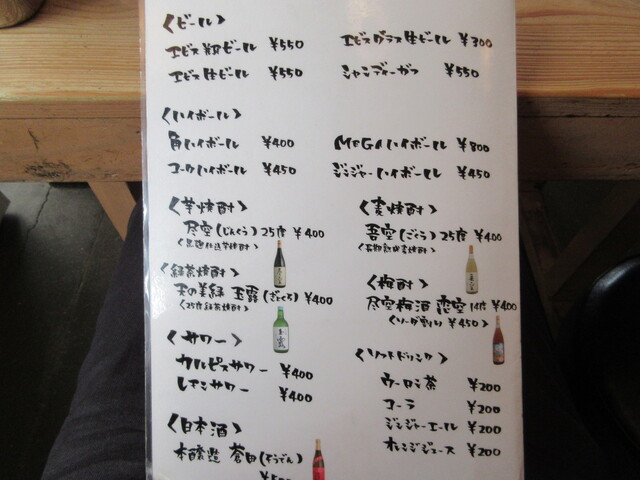 〈ビール〉
エビス瓶ビール ¥550
エビスグラス生ビール ¥300
エビス生ビール ¥550
シャンディーガフ ¥550
〈ハイボール〉
角ハイボール ¥400
MEGAハイボール ¥800
コークハイボール ¥450
ジンジャーハイボール ¥450
〈芋焼酎〉
尽空(じんくう)25度 ¥400
〈黒麹仕込芋焼酎〉
〈麦焼酎〉
吾空(ごくう)25度 ¥400
〈長期熟成麦焼酎〉
〈緑茶焼酎〉
天の美緑 玉露(ぎょくろ) ¥400
〈25度緑茶焼酎〉
〈梅酎〉
尽空梅酒 恋空 14度 ¥400
〈ソーダ割り ¥450〉
〈サワー〉
カルピスサワー ¥400
レモンサワー ¥400
〈ソフトドリンク〉
ウーロン茶 ¥200
コーラ ¥200
ジンジャーエール ¥200
オレンジジュース ¥200
〈日本酒〉
本醸造 蒼田(そうでん)